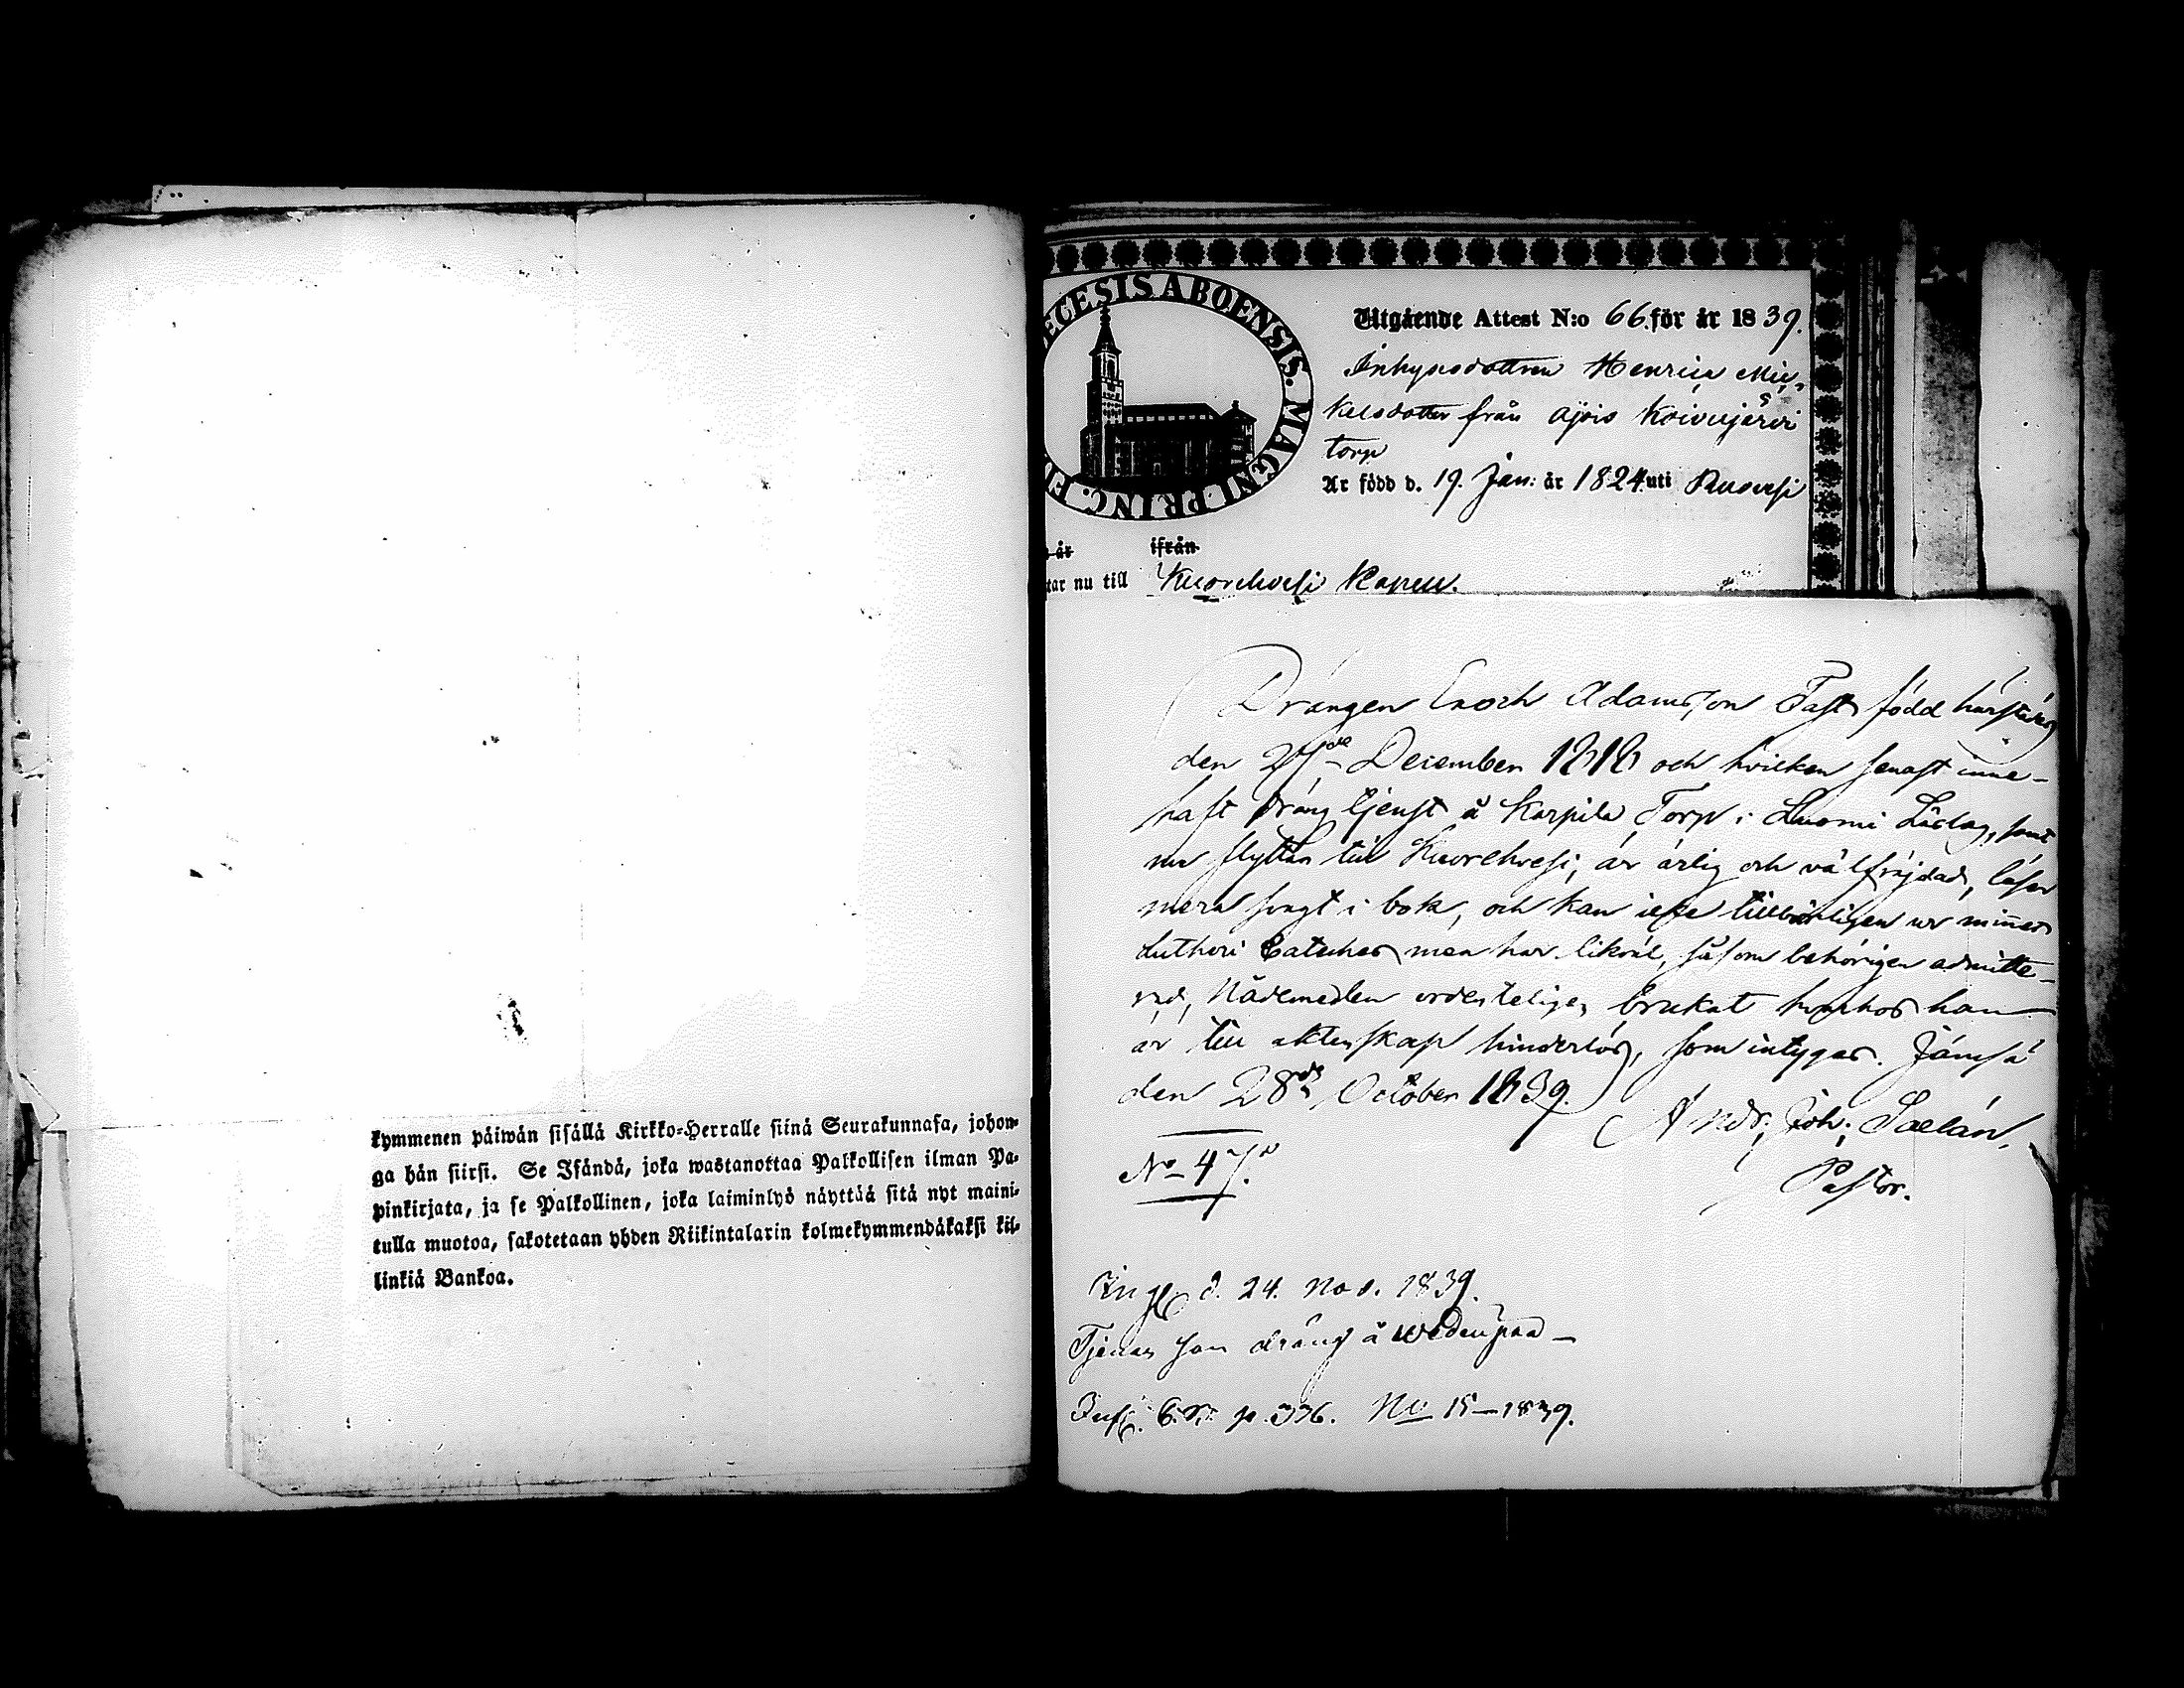 kymmenen päiwän sisällä Kirkko-Herralle siinä Seurakunnasa, johon-
ga hän siirsi. Se Isändä, joka wastanottaa Palkollisen ilman Pa-
pinkirjata, ja se Palkollinen, joka laiminlyö näyttää sitä nyt maini-
tulla muotoa, sakotetaan yhden Riikintalarin kolmekymmendäkaksi kil-
linkiä Bankoa.
ECESIS ABOENSIS. MAGNI PRINC. FI
Utgående Attest N:o 66. för år 1839.
Inhysesdottren Henrica Mic-
kelsdotter från Äjois Koivujärvi
torp
Är född d. 19. Jan: år 1824 uti Ruovesi
år ifrån
tar nu till Kuorehvesi Kapell.
Drängen Enoch Adamsson Fast född härstädes
den 27de December 1818 och hvilken senast inne-
haft drängtjenst å Karpila Torp i Luomi Lästag, samt
nu flyttar till Kuorehvesi, är ärlig och välfrejdad, läser
mera svagt i bok, och kan icke tillbörligen ur minnet
Lutheri Cateches men har likväl, såsom behörigen admitte-
rad, Nådemedlen ordenteligen brukat hvarhos han
är till äktenskap hinderlös, som intygar. Jämsä
den 28de October 1839.
Andr. Joh. Saelán,
Pastor.
No 47.
Ingf d. 24. Nov. 1839.
Tjenar som dräng å Wedenpää
p. 336. No 15—1839.